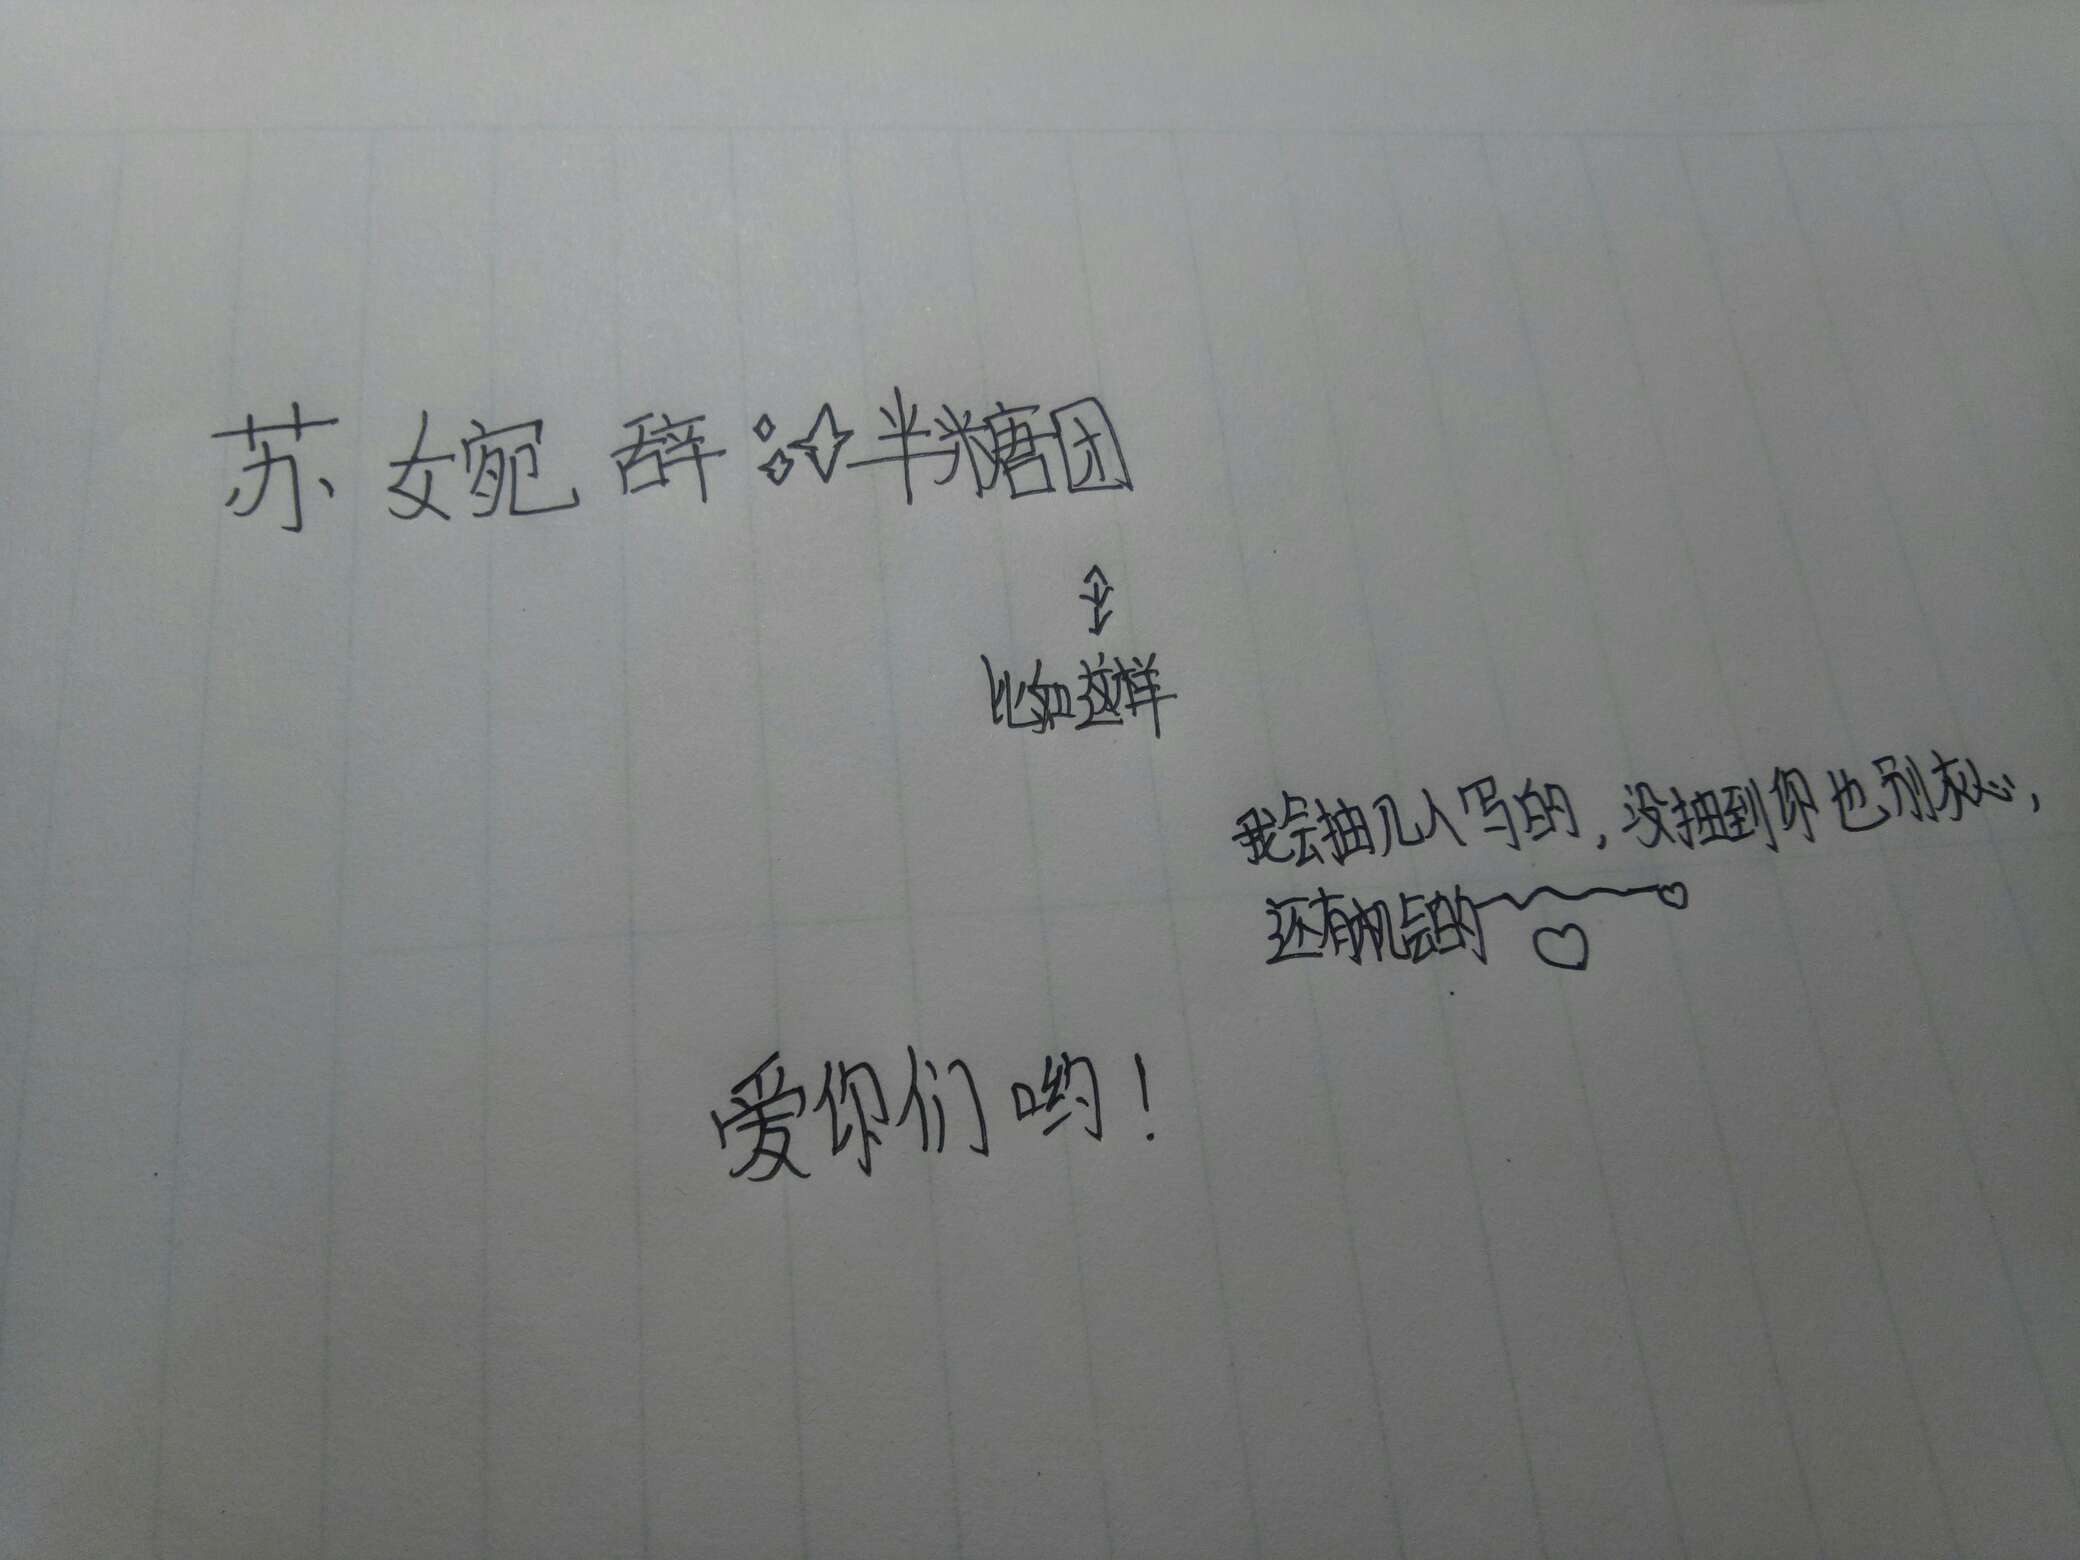 苏婉辞✨半糖团
比如这样
我会抽几人写的，没抽到你也别灰心，
还有机会的
爱你们哟！